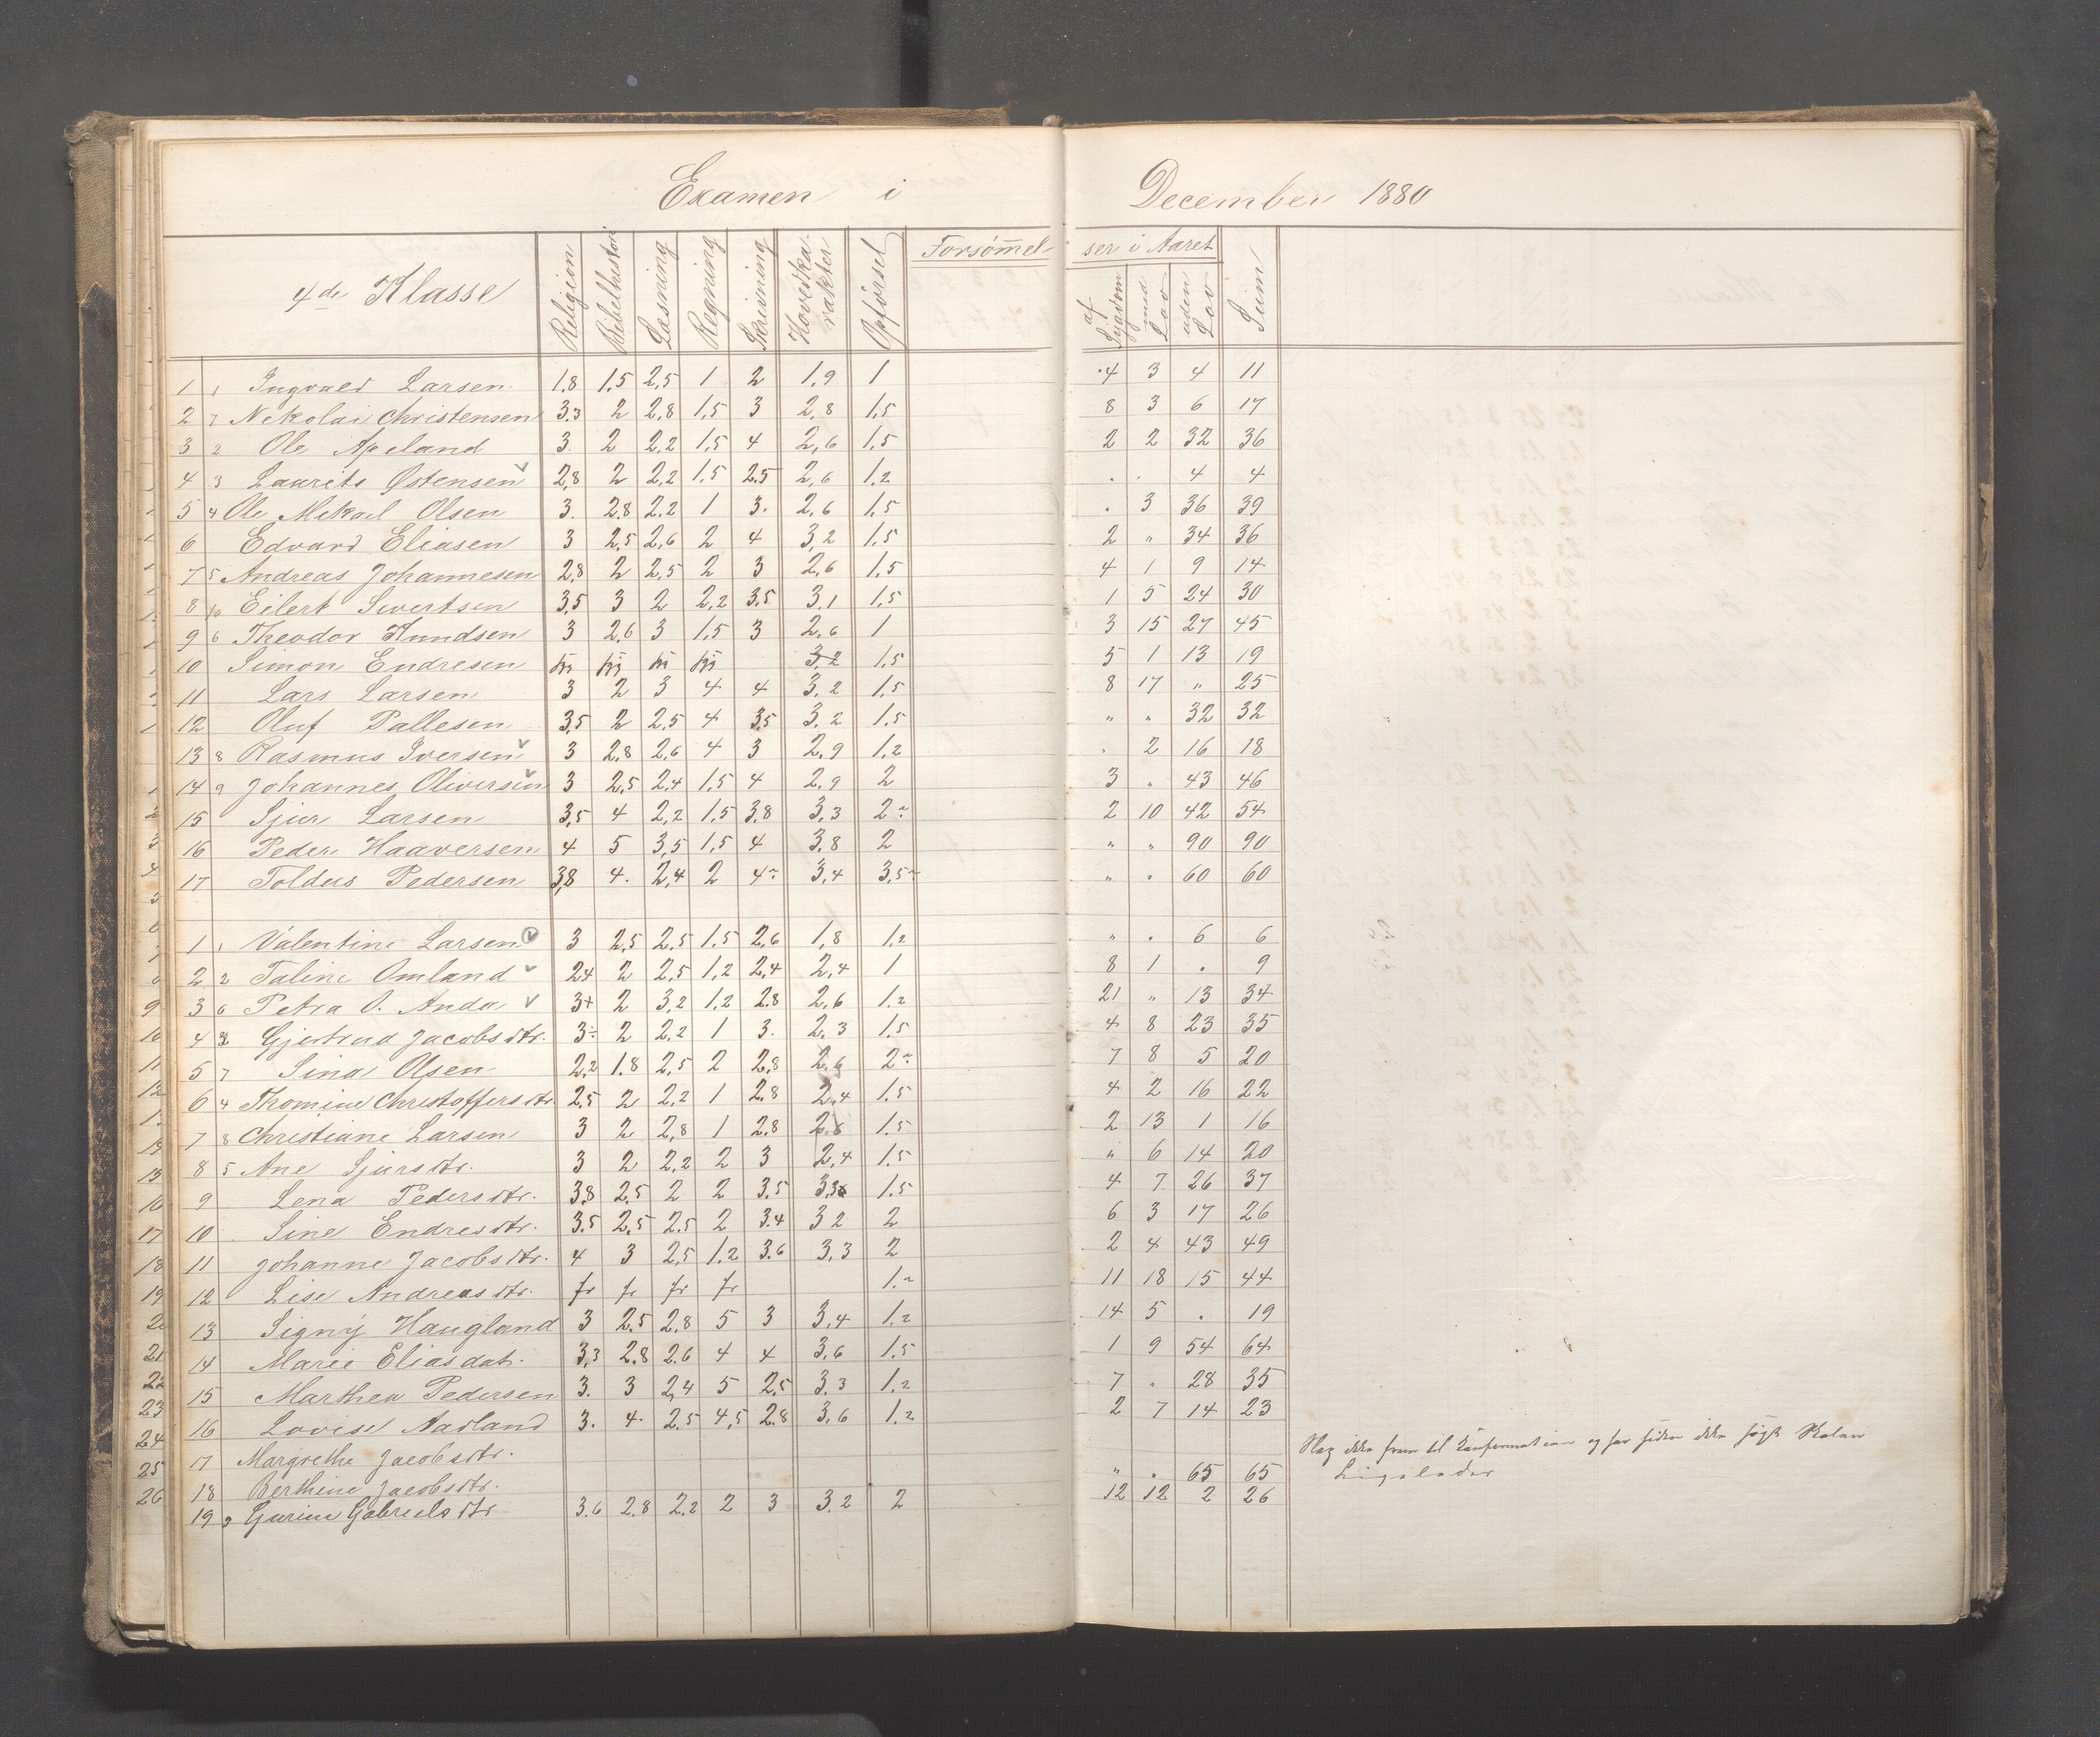 Examen i December 1880
4de Klasse Religion Bibelhistori Læsning Regning Skrivning Hovedka- rakter Opførsel Forsømmel- ser i Aaret af Sygdom med Lov uden Lov Sum
1 1 Ingvald Larsen 1.8 1.5 2,5 1 2 1,9 1 4 3 4 11
2 7 Nekolai Christensen 3.3 2 2,8 1,5 3 2,8 1,5 8 3 6 17
3 2 Ole Apeland 3. 2 2,2 1,5 4 2,6 1,5 2 2 32 36
4 3 Laurits Østensen v 2,8 2 2,2 1.5 2.5 2,6 1,2 . . 4 4
5 4 Ole Mikael Olsen 3. 2.8 2.2 1 3. 2,6 1,5 . 3 36 39
6 Edvard Eliasen 3 2,5 2,6 2 4 3,2 1,5 2 " 34 36
7 5 Andreas Johannesen 2,8 2 2,5 2 3 2,6 1,5 4 1 9 14
8 10 Eilert Sivertsen 3,5 3 2 2,2 3,5 3,1 1,5 1 5 24 30
9 6 Theodor Knudsen 3 2,6 3 1,5 3 2,6 1 3 15 27 45
10 Simon Endresen 3,2 1,5 5 1 13 19
11 Lars Larsen 3 2 3 4 4 3.2 1,5 8 17 " 25
12 Oluf Pallesen 3,5 2 2,5 4 3,5 3,2 1,5 " " 32 32
13 8 Rasmus Iversen v 3 2,8 2,6 4 3 2,9 1,2 . 2 16 18
14 9 Johannes Oliversen v 3 2,5 2,4 1,5 4 2,9 2 3 " 43 46
15 Sjur Larsen 3,5 4 2,2 1,5 3,8 3,3 2÷ 2 10 42 54
16 Peder Haaversen 4 5 3,5 1,5 4 3,8 2 " " 90 90
17 Toldus Pedersen 3,8 4. 2,4 2 4÷ 3,4 3,5÷ " . 60 60
1 1 Valentine Larsen v 3 2,5 2,5 1.5 2,6 1,8 1,2 " . 6 6
2 2 Taline Omland v 2,4 2 2,5 1,2 2,4 2,4 1 8 1 . 9
3 6 Petra O. Anda v 3+ 2 3,2 1,2 2.8 2,6 1.2 21 " 13 34
4 3 Gjertrud Jacobsdtr. 3÷ 2 2,2 1 3. 2,3 1.5 4 8 23 35
5 7 Sina Olsen 2,2 1.8 2,5 2 2,8 2,6 2÷ 7 8 5 20
6 4 Thomine Christoffersdtr. 2,5 2 2,2 1 2.8 2,4 1.5 4 2 16 22
7 8 Christiane Larsen 3 2 2,8 1 2.8 2.6 1.5 2 13 1 16
8 5 Ane Sjursdtr. 3 2 2,2 2 3 2,4 1.5 " 6 14 20
9 Lena Pedersdtr. 3,8 2,5 2 2 3,5 3,3 1.5 4 7 26 37
10 Sine Endresdtr. 3.5 2,5 2.5 2 3.4 3 2 2 6 3 17 26
11 Johanne Jacobsdtr. 4 3 2,5 1.2 3.6 3,3 2 2 4 43 49
12 Lise Andreasdtr. fr fr fr fr 1.÷ 11 18 15 44
13 Signy Haugland 3 2.5 2.8 5 3 3,4 1.2 14 5 . 19
14 Marie Eliasdatr. 3,3 2.8 2.6 4 4 3,6 1.5 1 9 54 64
15 Marthea Pedersen 3. 3 2,4 5 2,5 3.3 1.2 7 " 28 35
16 Lovise Aadland 3. 4. 2.5 4,5 2.8 3,6 1.2 2 7 14 23
17 Margrethe Jacobsdtr. ikke frem til Konfirmation og har siden ikke søgt Skolen
18 Berthine Jacobsdtr. " . 65 65
19 9 Gurine Gabrielsdtr 3.6 2.8 2.2 2 3 3.2 2 12 12 2 26